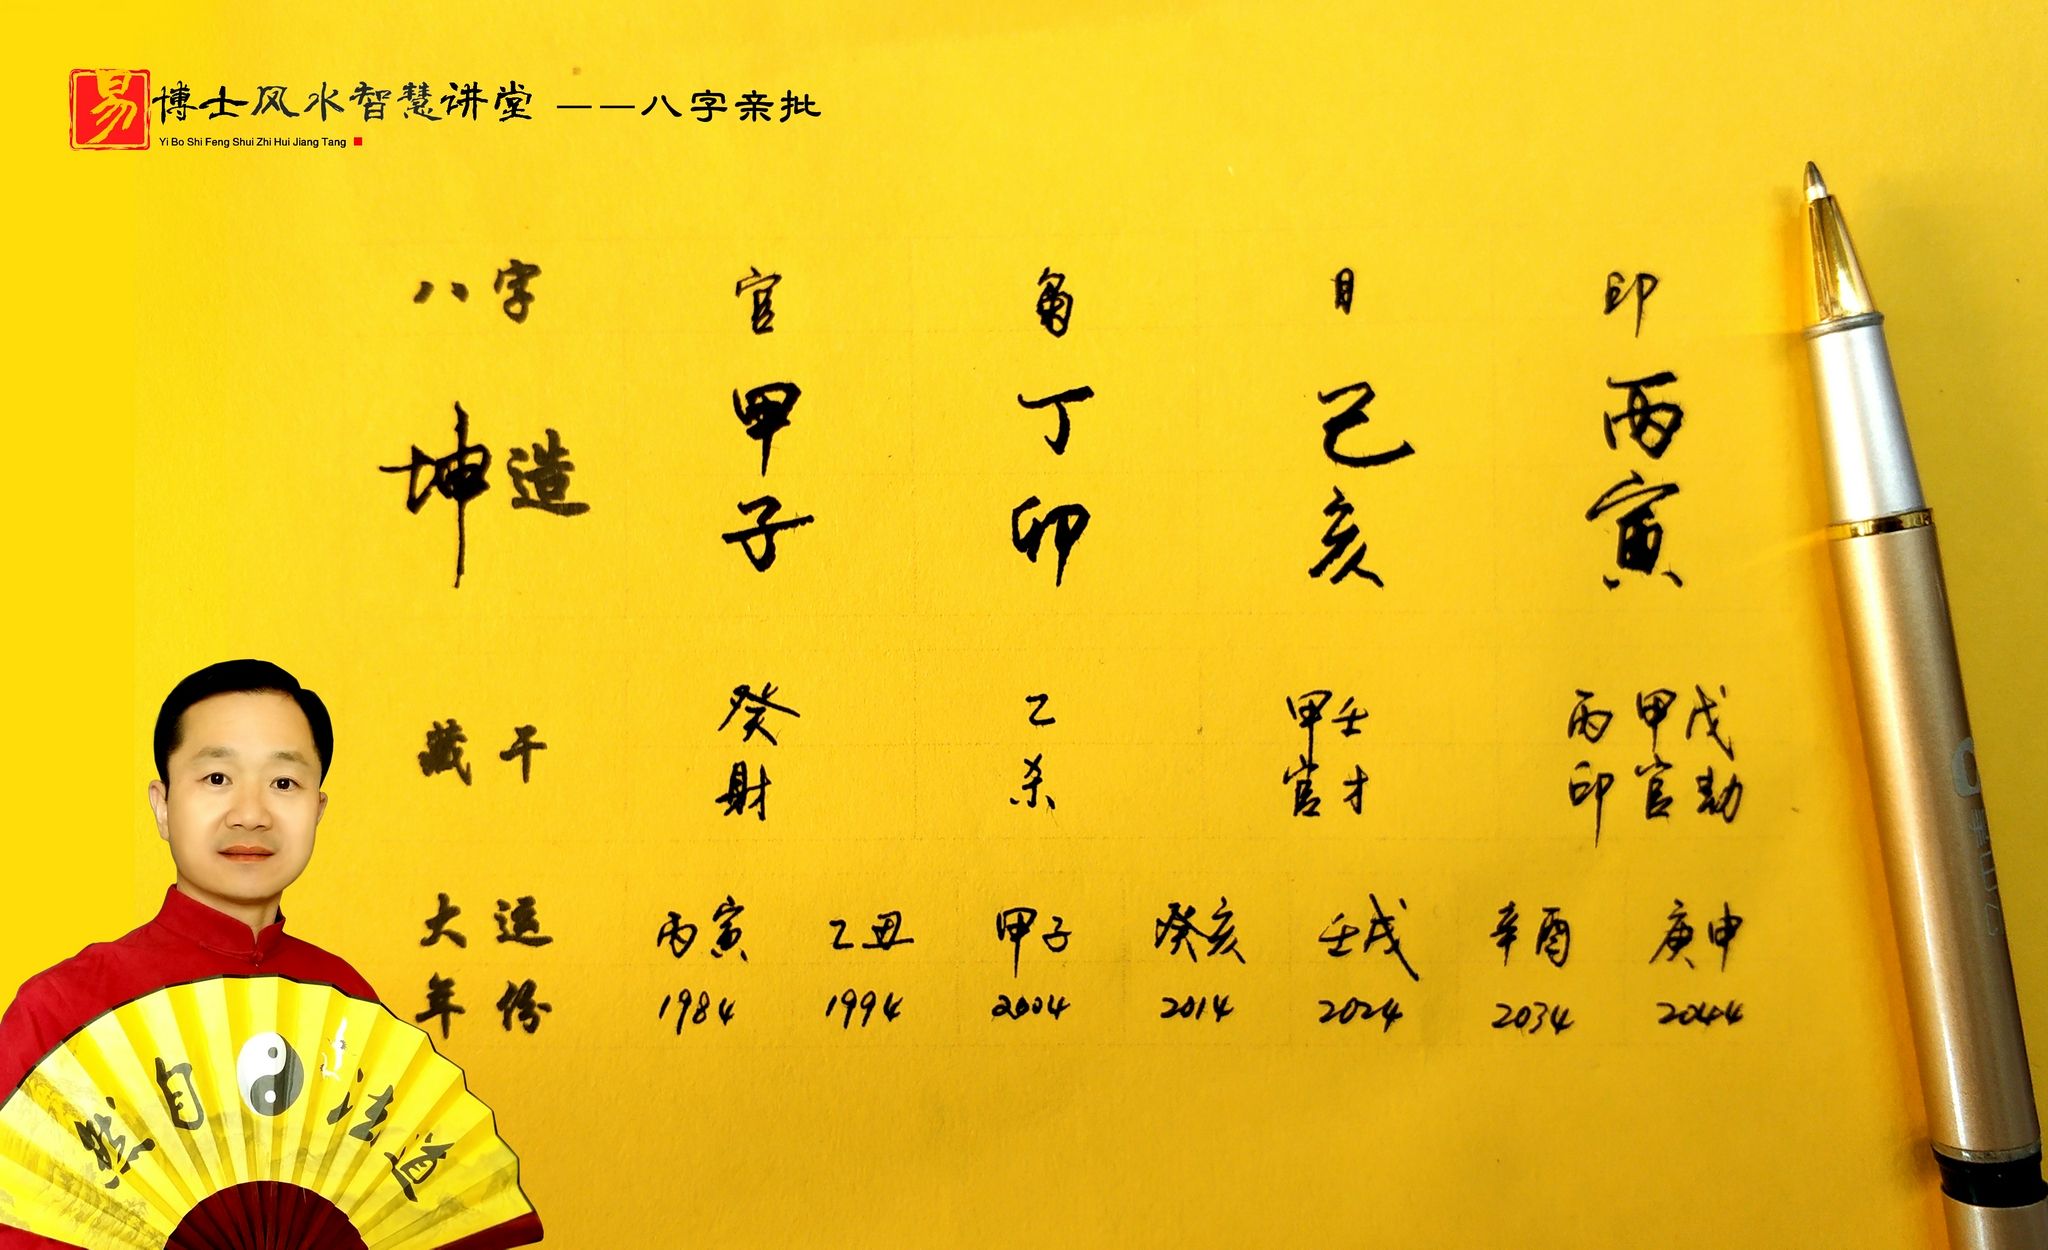 易博士风水智慧讲堂 ——八字亲批
Yi Bo Shi Feng Shui Zhi Hui Jiang Tang
八字 官 日 印
坤造 甲 丁 己 丙
子 卯 亥 寅
藏干 癸 乙 甲壬 丙甲戊
財 杀 官才 印官劫
大运 丙寅 乙丑 甲子 癸亥 壬戌 辛酉 庚申
年份 1984 1994 2004 2014 2024 2034 2044
然自法道